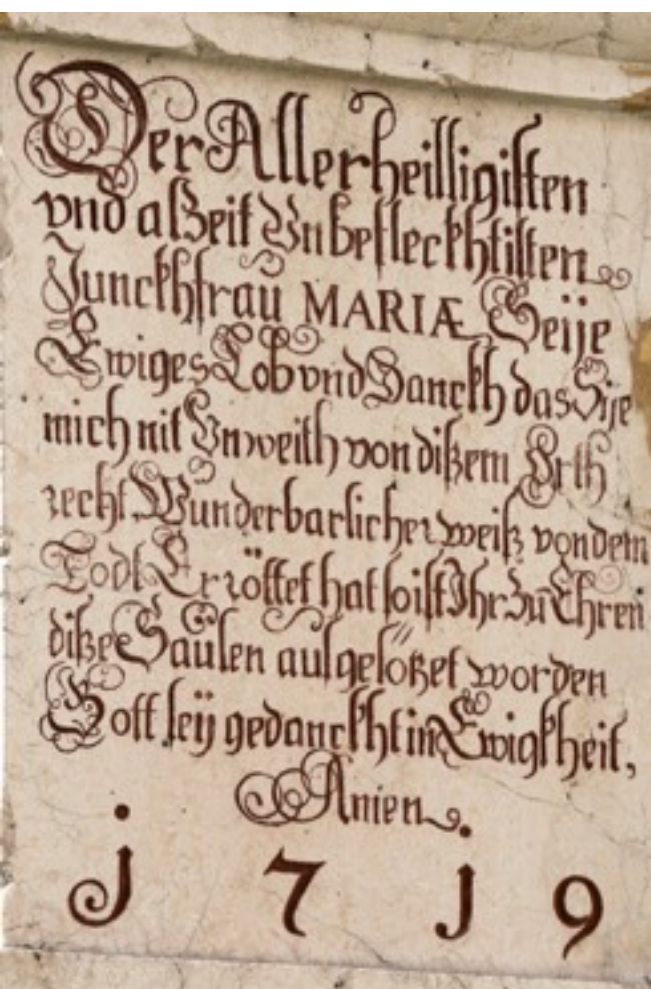 Der Allerheilligisten
vnd alßeit Vnbefleckhtisten
Junckhfrau MARIÆ Seije
Ewiges Lob vnd Danckh das Sije
mich nit Vnweith von dißem Orth
recht Wunderbarlicher weiß von dem
Todt Erröttet hat so ist Ihr Zu Ehren
diße Saülen aufgesötzet worden
Gott seÿ gedanckht in Ewigkheit,
Amen.
j 7 j 9